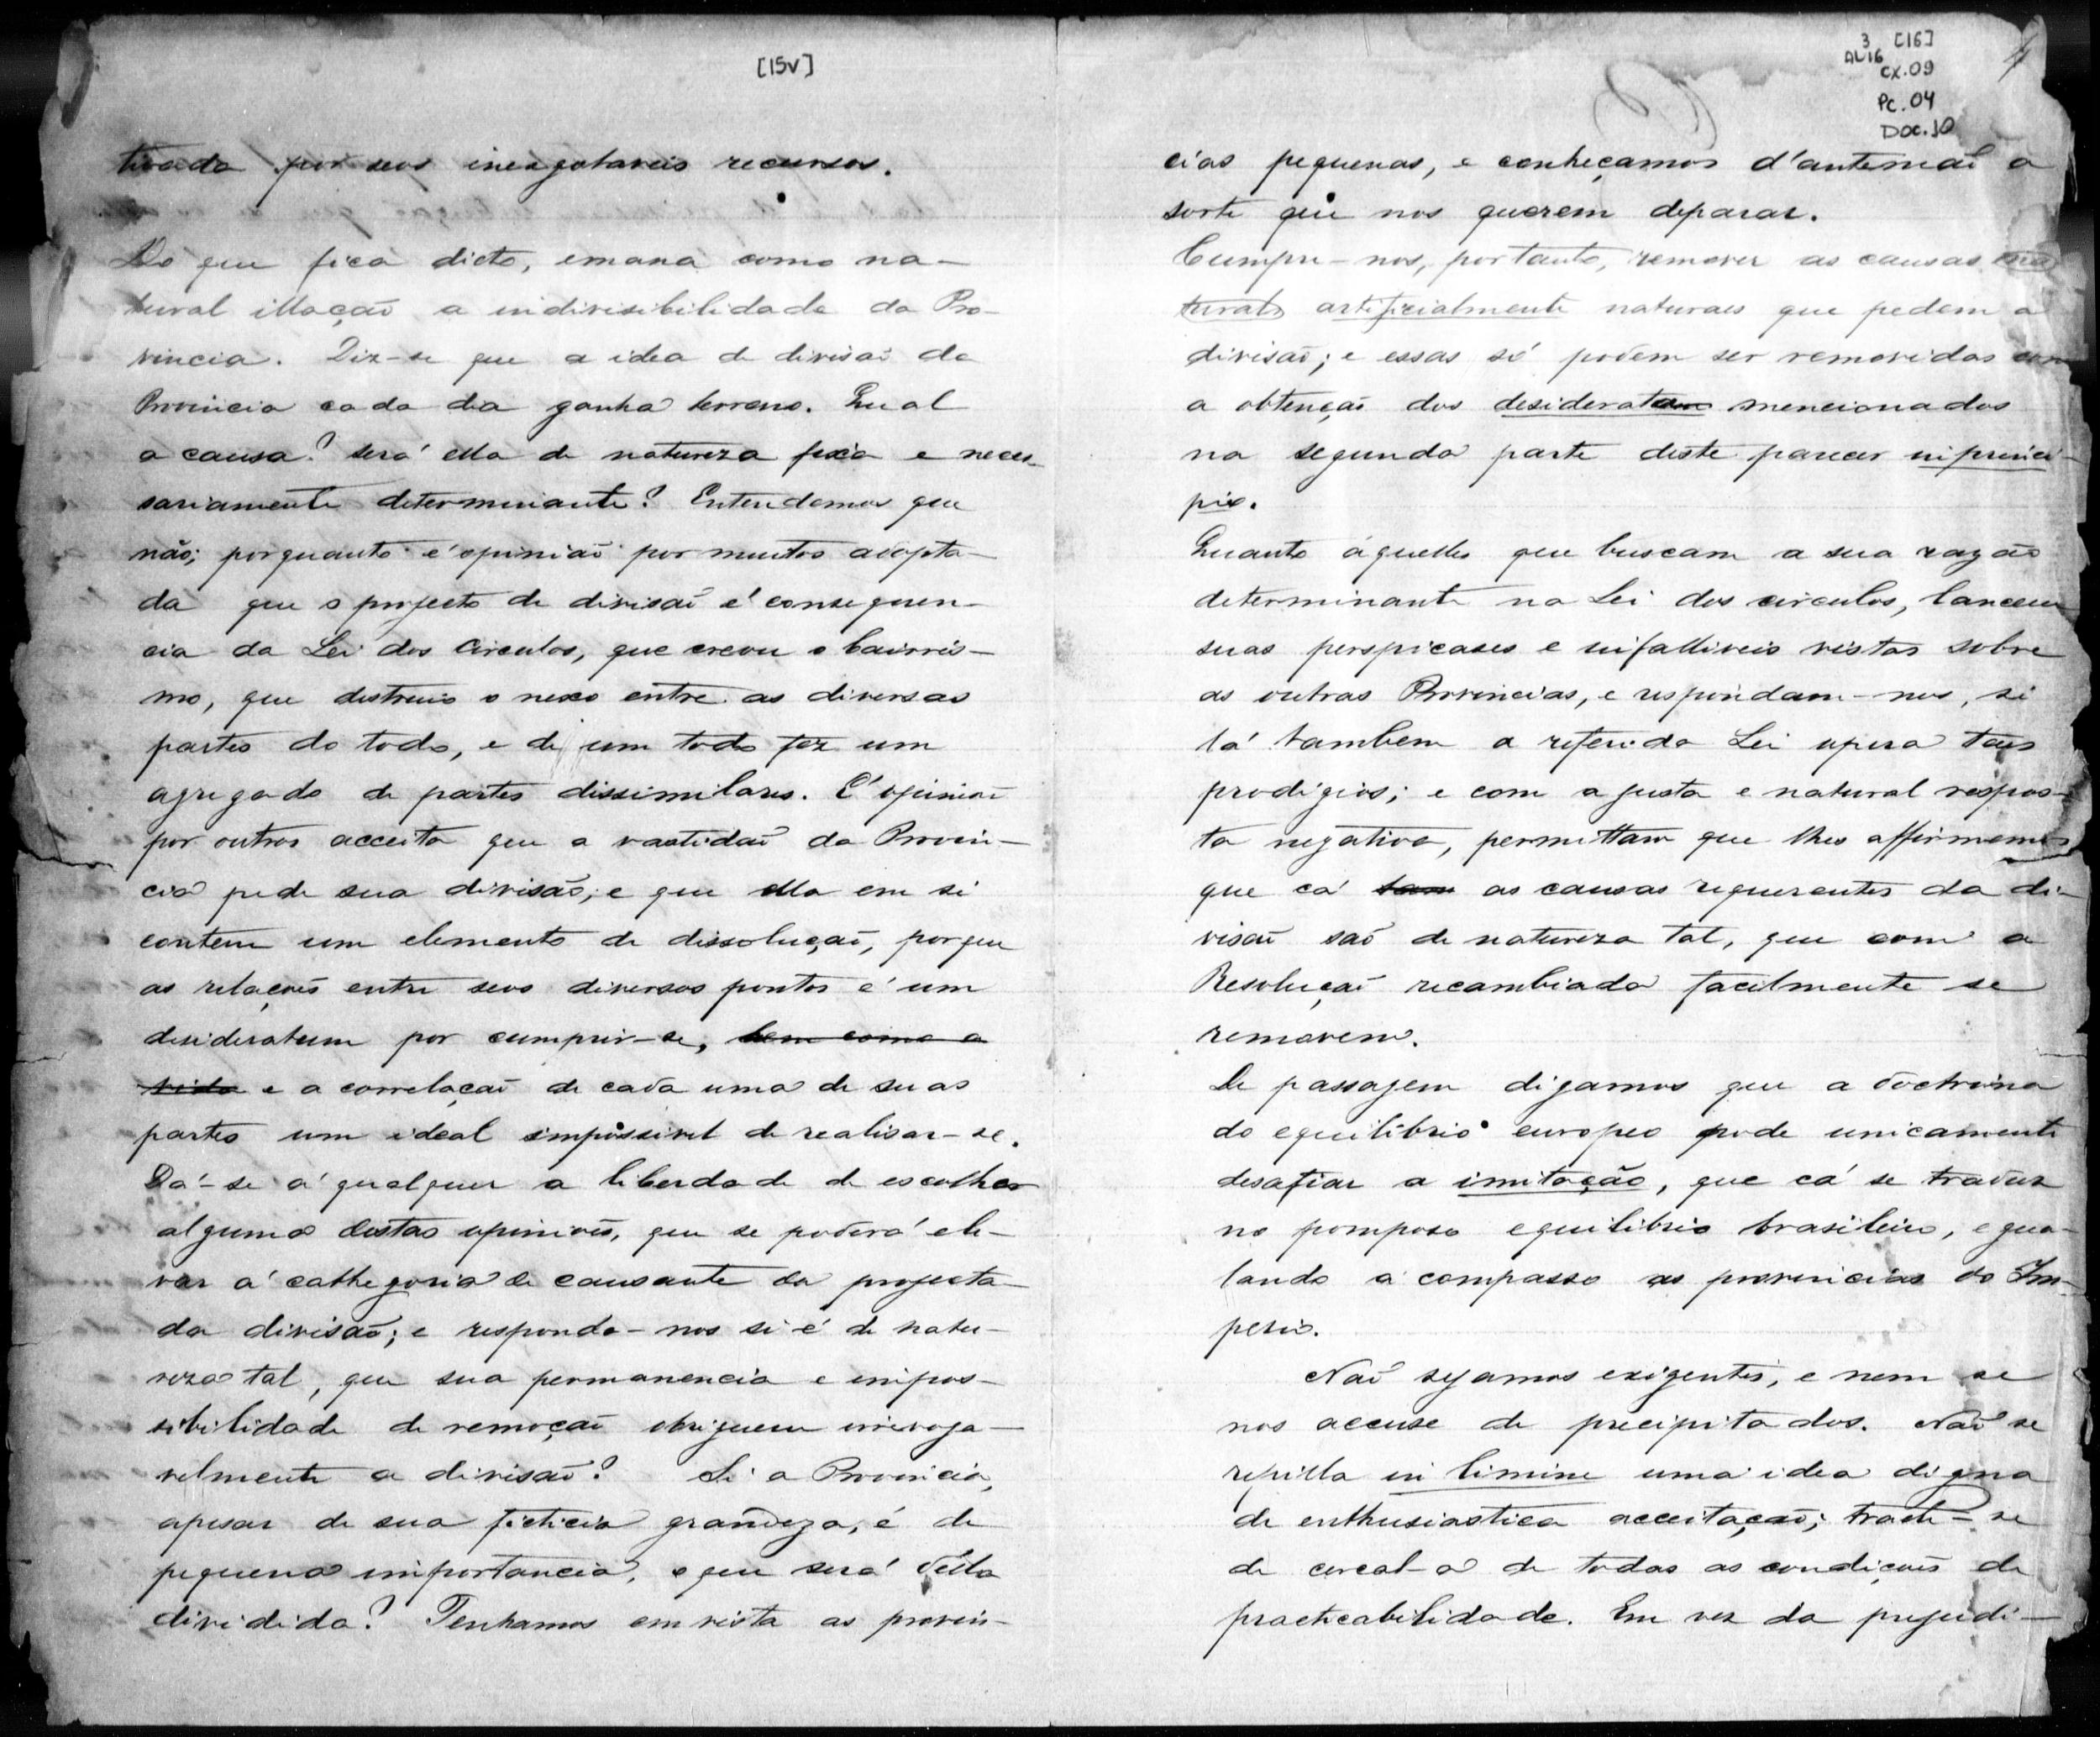 [15v]
tivada por seus inexgotaveis recursos.
Do que fica dicto, emana como na-
tural illaçaõ a indivisibilidade da Pro-
vincia. Diz-se que a idea de divisaõ da
Provincia cada dia ganha terreno. Qual
a causa? será ella de natureza fixa e neces-
sariamente determinante? Entendemos que
não; porquanto é opiniaõ por muitos adopta-
da que o projecto de divisaõ é consequen-
cia da Lei dos Circulos, que creou o bairris-
mo, que destruio o nexo entre as diversas
partes do todo, e de um todo fez um
agregado de partes dissimilares. É opiniaõ
por outros acceita que a vastidaõ da Provin-
cia pede sua divisão, e que ella em si
contem um elemento de dissoluçaõ, porque
as relaçoẽs entre seus diversos pontos é um
desideratum por cumprir-se, bem como a
vida e a correlaçaõ de cada uma de suas
partes um ideal impossivel de realisar-se.
Dá-se á qualquer a liberdade de escolher
alguma destas opinioẽs, que se poderá ele-
var á cathegoria de causante da projecta-
da divisaõ; e responda-nos si é de natu-
reza tal, que sua permanencia e impos-
sibilidade de remoçaõ obriguem irrevoga-
velmente a divisaõ? Si a Provincia,
apesar de sua ficticia grandeza, é de
pequena importancia, o que será della
dividida? Tenhamos em vista as provin-
3 [16]
AL16
CX.09
Pc. 04
Doc.10
cias pequenas, e conheçamos d'antemaõ a
sorte que nos querem deparar.
Cumpre-nos, portanto, remover as causas na
turals artificialmente naturaes que pedem a
divisaõ; e essas só podem ser removidas com
a obtençaõ dos desideratum mencionados
na segunda parte deste parecer in princi-
pio.
Quanto áquelles que buscam a sua razaõ
determinante na Lei dos circulos, lancem
suas perspicases e infalliveis vistas sobre
as outras Provincias, e respondam-nos, si
lá tambem a referida Lei opera taes
prodigios; e com a justa e natural respos-
ta negativa, permittam que lhes affirmemos
que cá sam as causas requerentes da di-
visaõ saõ de natureza tal, que com a
Resoluçaõ recambiada facilmente se
removem.
De passagem digamos que a doctrina
do equilibrio europeo pode unicamente
desafiar a imitação, que cá se traduz
no pomposo equilibrio brasileiro, egua-
lando a compasso as provincias do Im-
perio.
Naõ sejamos exigentes, e nem se
nos accuse de precipitados. Naõ se
repilla in limine uma idea digna
de enthusiastica acceitaçaõ; tracte-se
de cercal-a de todas as condiçoẽs de
practicabilidade. Em vez da prejudi-